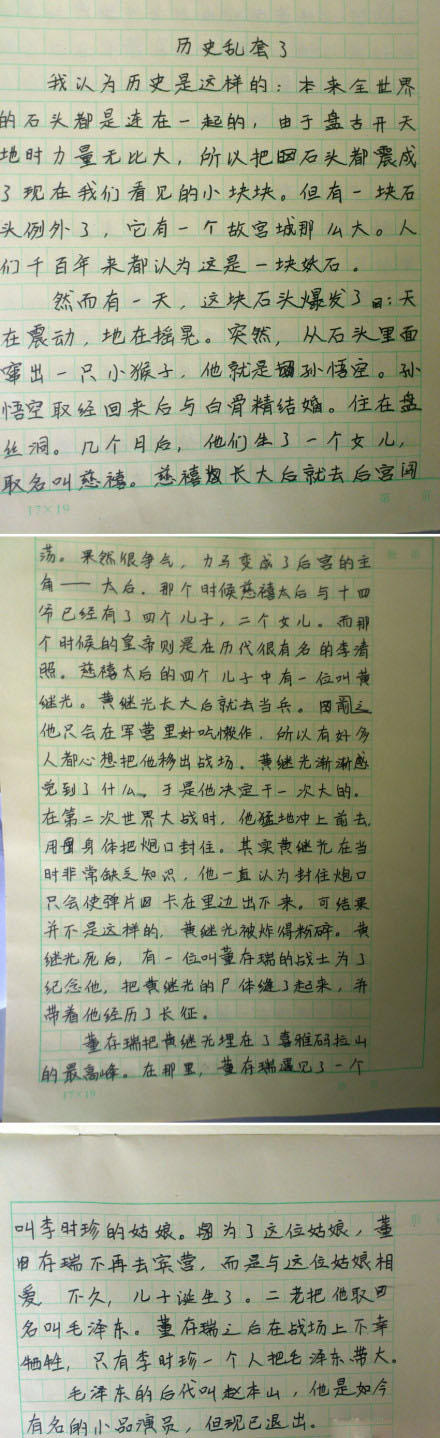 历史乱套了
我认为历史是这样的：本来全世界
的石头都是连在一起的，由于盘古开天
地时力量无比大，所以把石头都震成
了现在我们看见的小块块。但有一块石
头例外了，它有一个故宫城那么大。人
们千百年来都认为这是一块妖石。
然而有一天，这块石头爆发了：天
在震动，地在摇晃。突然，从石头里面
窜出一只小猴子，他就是孙悟空。孙
悟空取经回来后与白骨精结婚。住在盘
丝洞。几个月后，他们生了一个女儿，
取名叫慈禧。慈禧长大后就去后宫闯
17×19
荡。果然很争气，力马变成了后宫的主
角——太后。那个时候慈禧太后与十四
爷已经有了四个儿子，二个女儿。而那
个时候的皇帝则是在历代很有名的李清
照。慈禧太后的四个儿子中有一位叫黄
继光。黄继光长大后就去当兵。
他只会在军营里好吃懒作，所以有好多
人都心想把他移出战场。黄继光渐渐感
觉到了什么。于是他决定干一次大的。
在第二次世界大战时，他猛地冲上前去，
用身体把炮口封住。其实黄继光在当
时非常缺乏知识，他一直认为封住炮口
只会使弹片卡在里边出不来。可结果
并不是这样的，黄继光被炸得粉碎。黄
继光死后，有一位叫董存瑞的战士为了
纪念他，把黄继光的尸体缝了起来，并
带着他经历了长征。
董存瑞把黄继光埋在了喜雅码拉山
的最高峰。在那里，董存瑞遇见了一个
17×19
叫李时珍的姑娘。因为了这位姑娘，董
存瑞不再去宾营，而是与这位姑娘相
爱 不久，儿子诞生了。二老把他取
名叫毛泽东。董存瑞之后在战场上不幸
牺牲，只有李时珍一个人把毛泽东带大。
毛泽东的后代叫赵本山，他是如今
有名的小品演员，但现已退出。